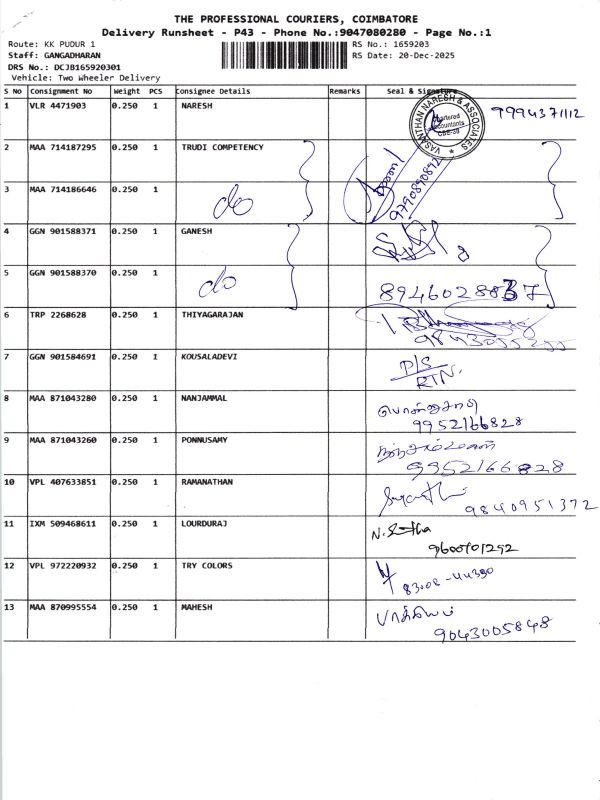 THE PROFESSIONAL COURIERS, COIMBATORE
Delivery Runsheet - P43 - Phone No.:9047080280 - Page No.:1
Route: KK PUDUR 1 RS No.: 1659203
Staff: GANGADHARAN RS Date: 20-Dec-2025
DRS No.: DCJB165920301
Vehicle: Two Wheeler Delivery
S No Consignment No Weight PCS Consignee Details Remarks Seal & Signature
1 VLR 4471903 0.250 1 NARESH VASANTHAN NARESH & ASSOCIATES Chartered Accountants CBE-38 9994371112
2 MAA 714187295 0.250 1 TRUDI COMPETENCY
9790890892
3 MAA 714186646 0.250 1 do
4 GGN 901588371 0.250 1 GANESH
5 GGN 901588370 0.250 1 do
8946028837
6 TRP 2268628 0.250 1 THIYAGARAJAN
7 GGN 901584691 0.250 1 KOUSALADEVI P/S
RTN.
8 MAA 871043280 0.250 1 NANJAMMAL பொன்னுசாமி
9952166828
9 MAA 871043260 0.250 1 PONNUSAMY
9952166828
10 VPL 407633851 0.250 1 RAMANATHAN
9840951372
11 IXM 509468611 0.250 1 LOURDURAJ
9600701292
12 VPL 972220932 0.250 1 TRY COLORS
83002-44390
13 MAA 870995554 0.250 1 MAHESH
9043005848